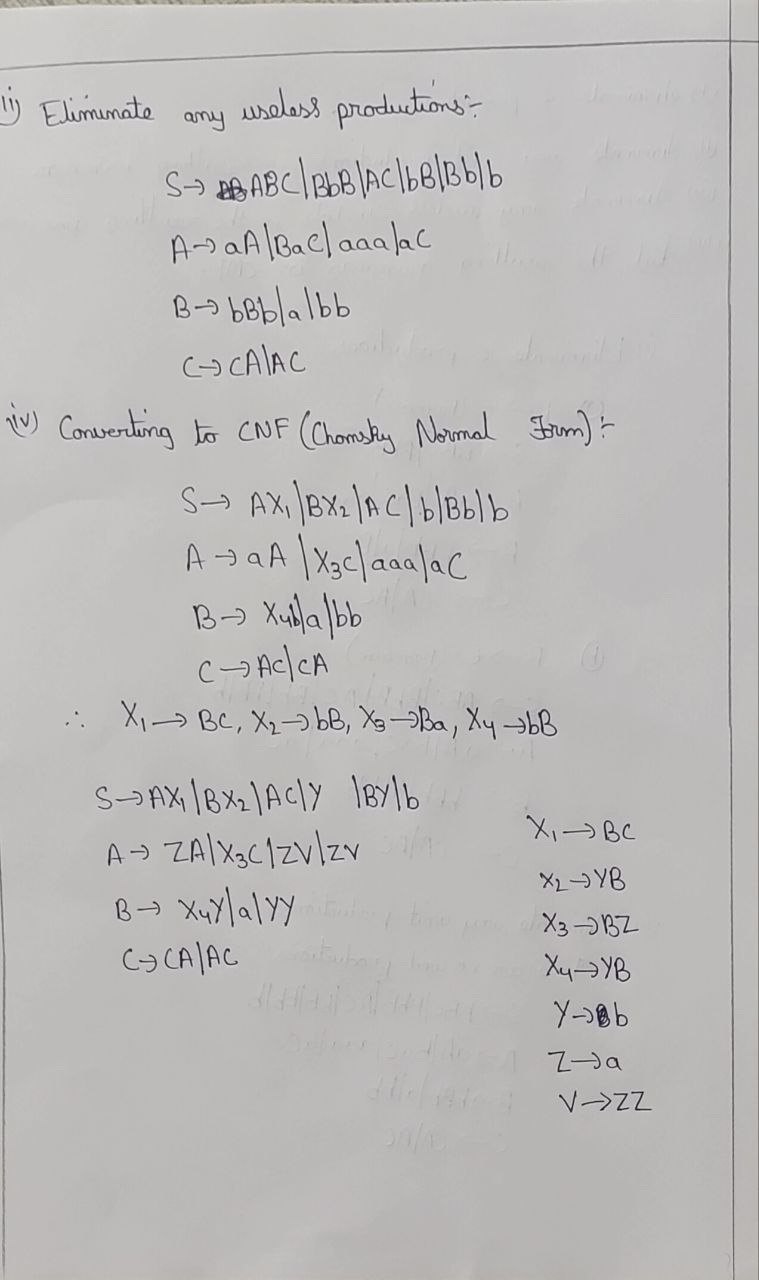 ii) Eliminate any useless productions:-
S→ ABC|BbB|AC|bB|Bb|b
A→aA|BaC|aaa|aC
B→ bBb|a|bb
C→CA|AC
iv) Converting to CNF (Chomsky Normal Form):-
S→ AX₁|BX₂|AC|b|Bb|b
A→aA|X₃C|aaa|aC
B→ X₄b|a|bb
C→AC|CA
∴ X₁→ BC, X₂→bB, X₃→Ba, X₄→bB
S→AX₁|BX₂|AC|Y |BY|b
A→ ZA|X₃C|ZV|ZV
B→ X₄Y|a|YY
C→CA|AC
X₁→BC
X₂→YB
X₃→BZ
X₄→YB
Y→b
Z→a
V→ZZ